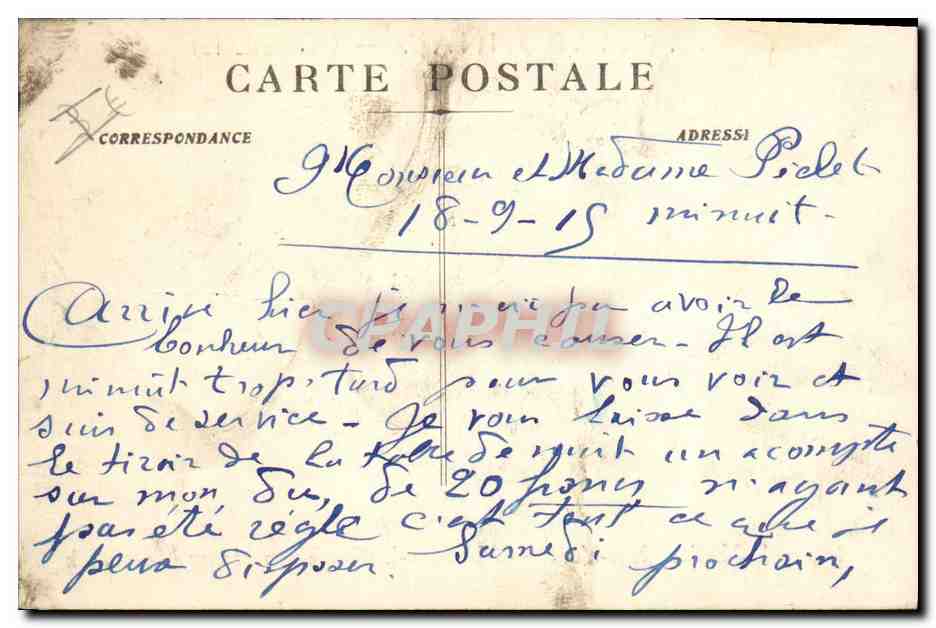 CARTE POSTALE
CORRESPONDANCE
ADRESSE
Monsieur et Madame Pidet
18-9-15 minuit-
Arrivé hier je n'ai pu avoir le
bonheur de vous causer - Il est
minuit trop tard pour vous voir et
suis de service - Je vous laisse dans
le tiroir de la table de nuit un acompte
sur mon du, de 20 francs n'ayant
pas été réglé c'est tout ce que je
peux disposer. Samedi prochain,
CPAPHIL